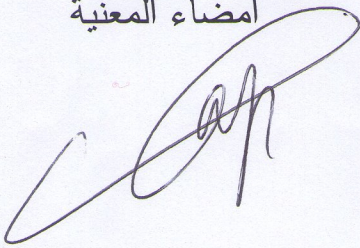 امضاء المعنية